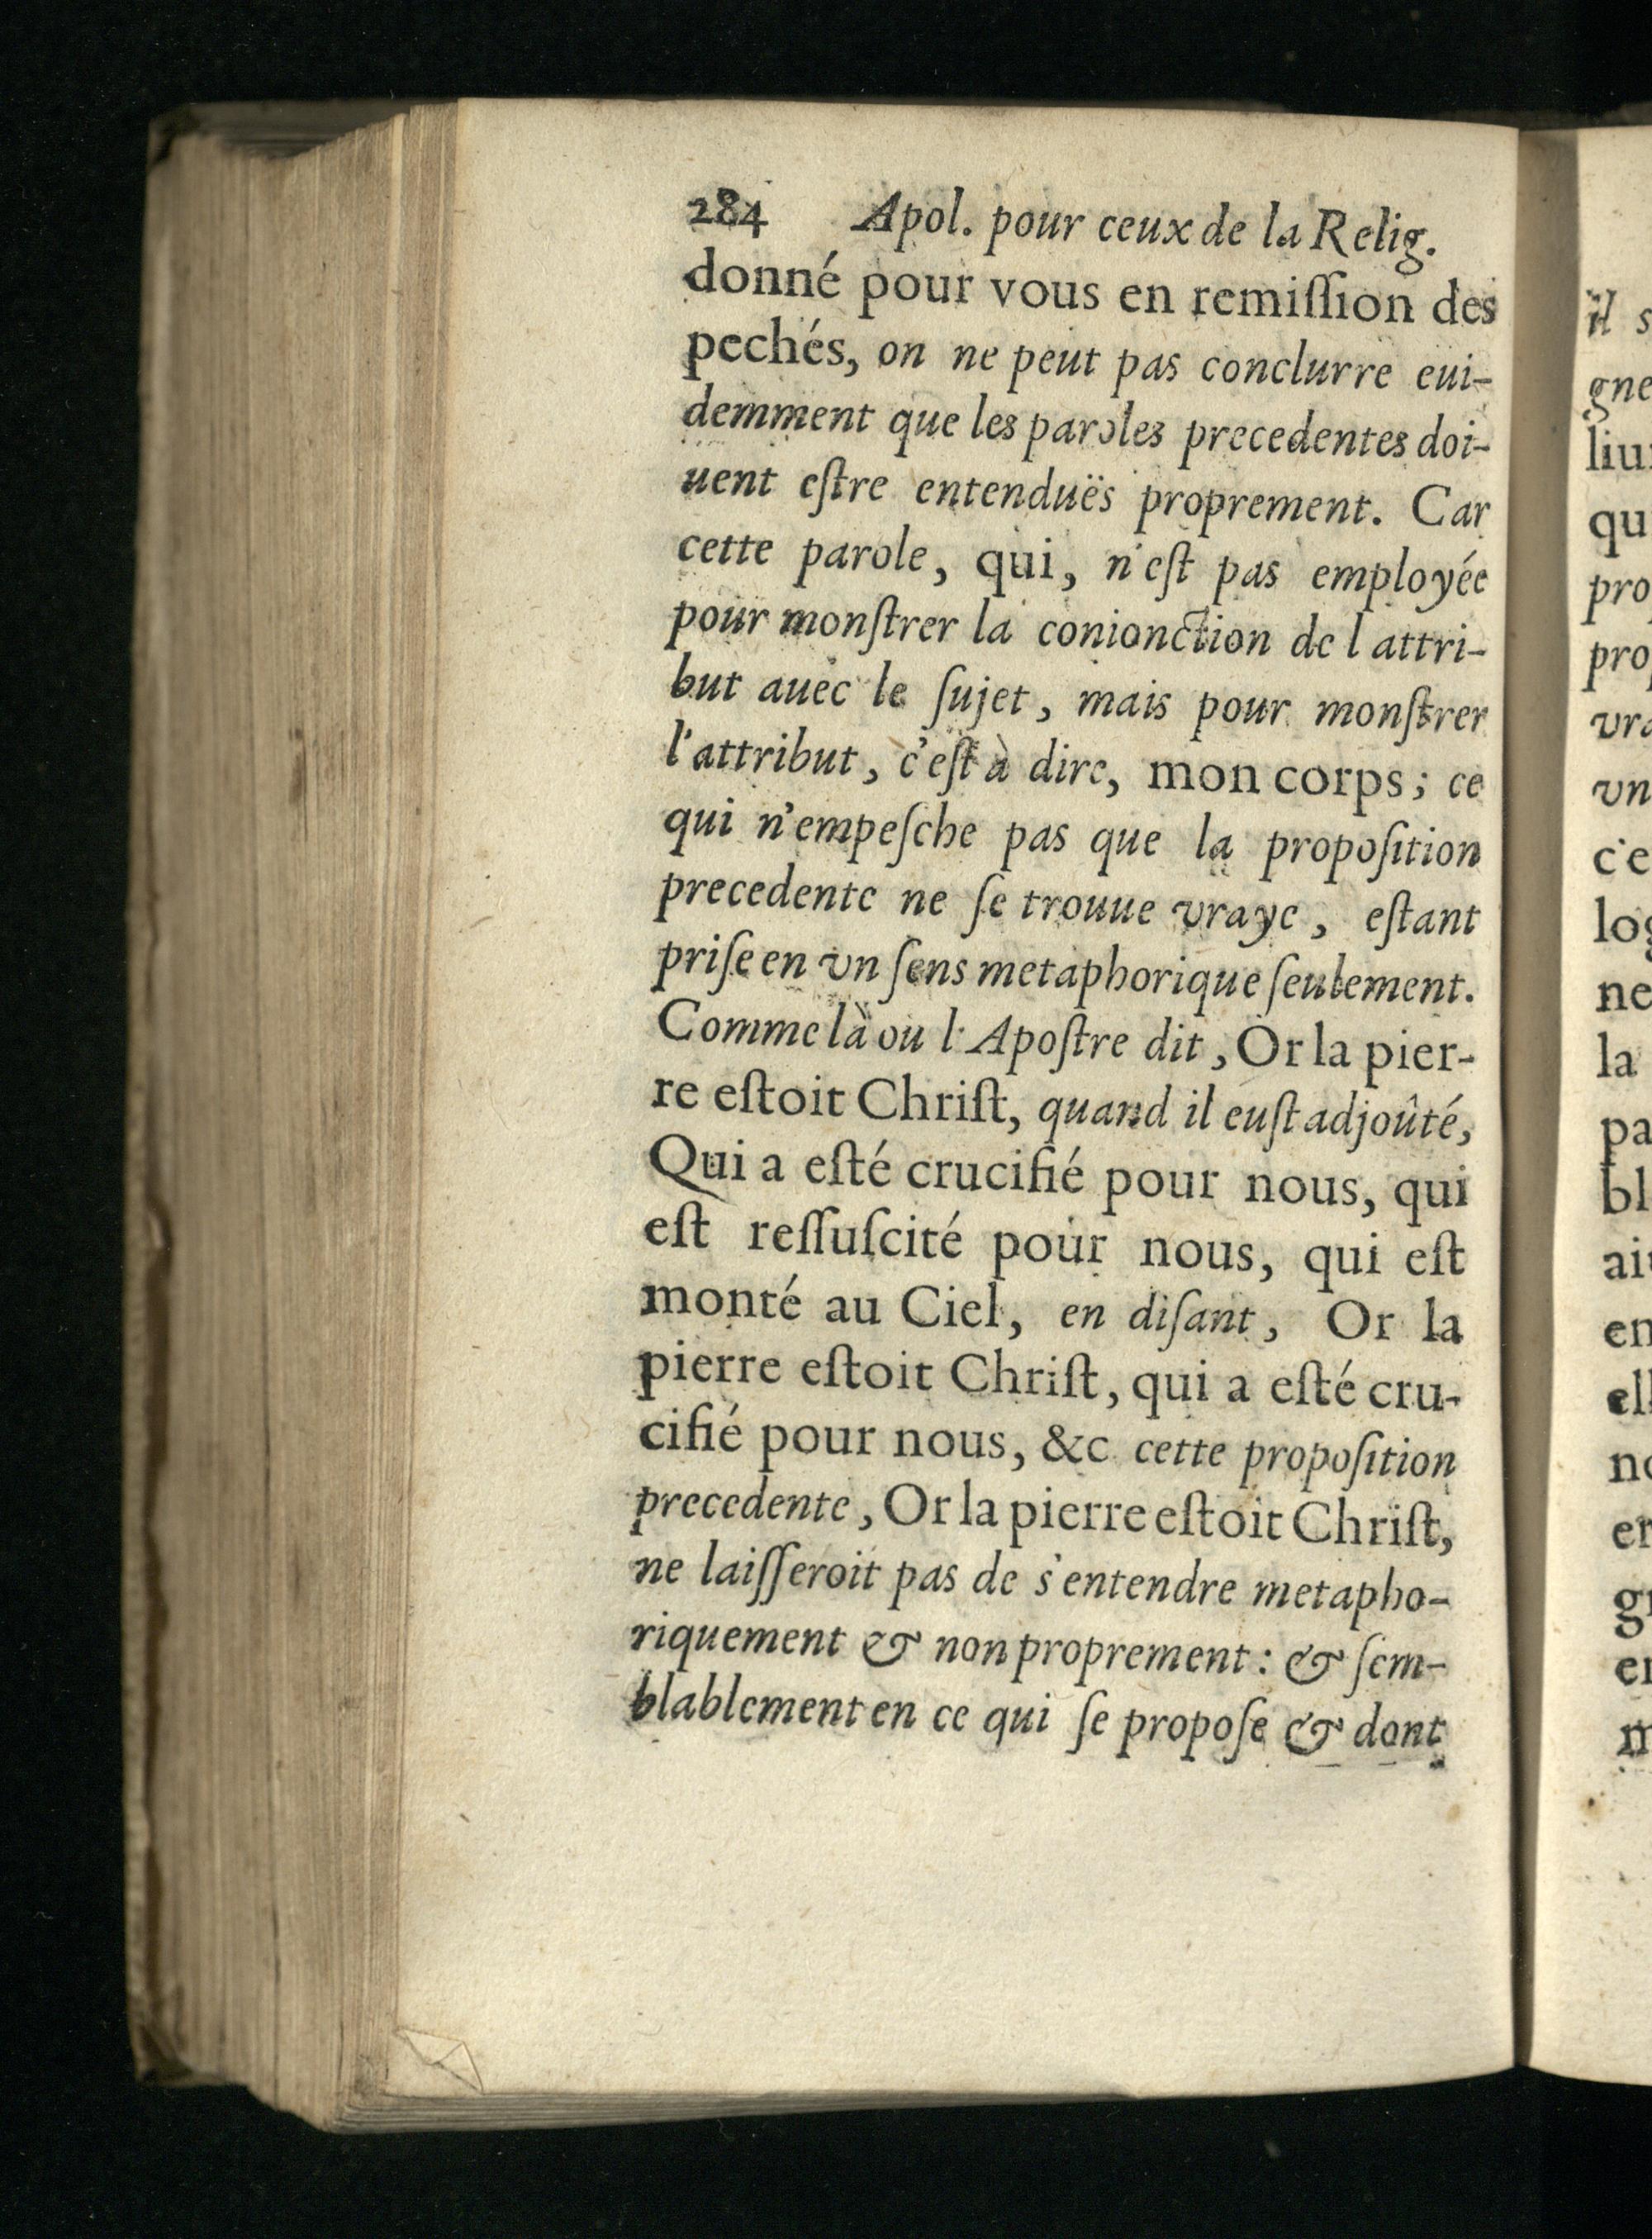 284 Apol. pour ceux de la Relig.
donné pour vous en remiſſion des
pechés, on ne peut pas conclurre eui-
demment que les paroles precedentes doi-
uent eſtre entenduës proprement. Car
cette parole, qui, n'eſt pas employée
pour monſtrer la conionction de l attri-
but auec le ſujet, mais pour monſtrer
l'attribut, c'eſt à dire, mon corps; ce
qui n'empeſche pas que la propoſition
precedente ne ſe trouue vraye, eſtant
priſe en vn ſens metaphorique ſeulement.
Comme là ou l'Apoſtre dit, Or la pier-
re eſtoit Chriſt, quand il euſt adjoûté,
Qui a eſté crucifié pour nous, qui
eſt reſſuſcité pour nous, qui eſt
monté au Ciel, en diſant, Or la
pierre eſtoit Chriſt, qui a eſté cru-
cifié pour nous, &c cette propoſition
precedente, Or la pierre eſtoit Chriſt,
ne laiſſeroit pas de s'entendre metapho-
riquement & non proprement: & ſem-
blablement en ce qui ſe propoſe & dont
il s
gne
liu
qu
pro
pro
vra
vn
c'e
log
ne
la
pa
bl
ai
en
ell
no
er
gr
en
m